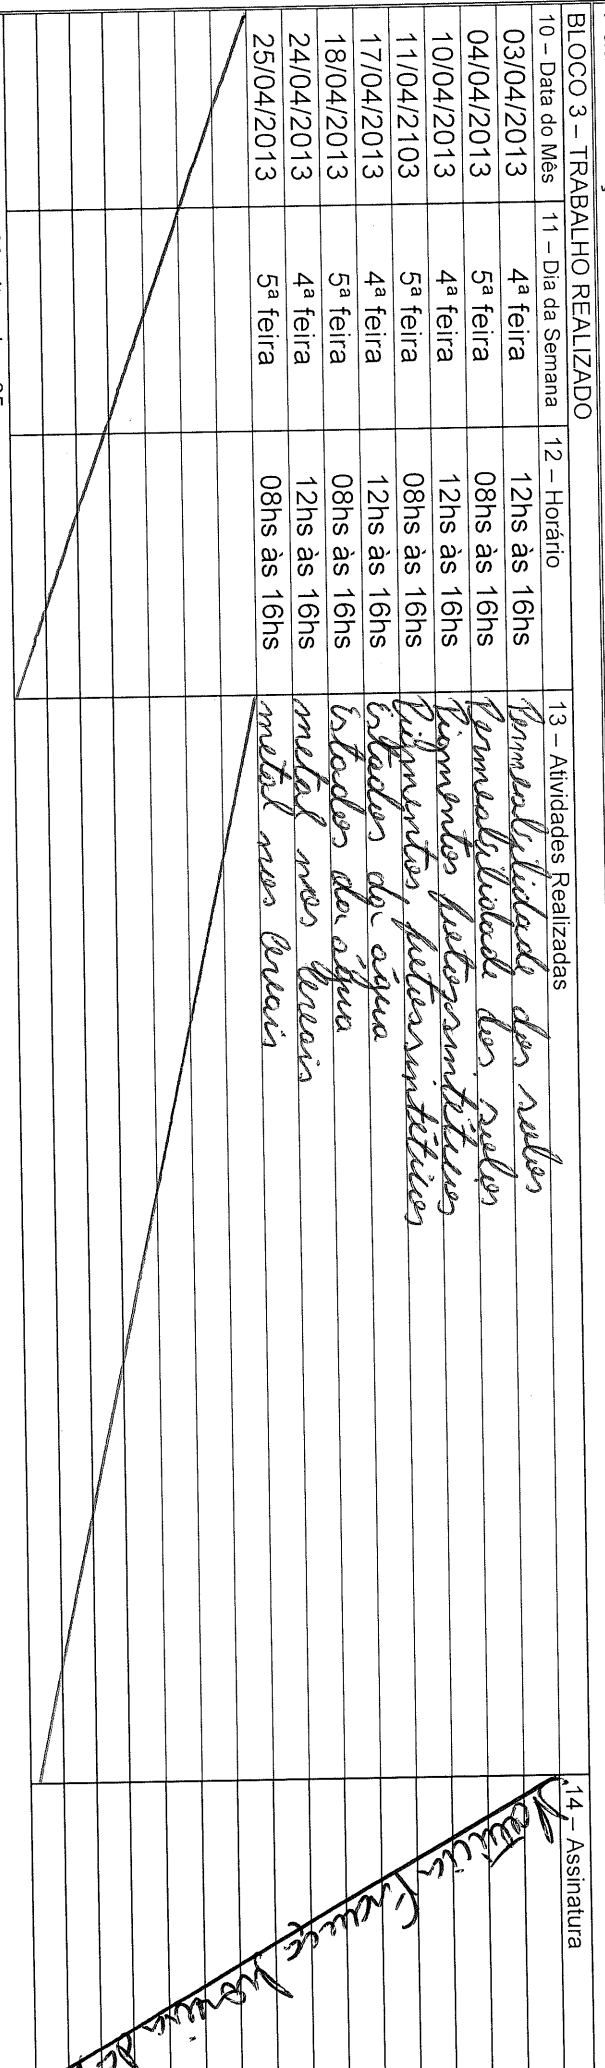 BLOCO 3 – TRABALHO REALIZADO
10 – Data do Mês 11 – Dia da Semana 12 – Horário 13 – Atividades Realizadas 14 – Assinatura
03/04/2013 4ª feira 12hs às 16hs Permeabilidade dos solos
04/04/2013 5ª feira 08hs às 16hs Permeabilidade dos solos
10/04/2013 4ª feira 12hs às 16hs Pigmentos fotossintéticos
11/04/2103 5ª feira 08hs às 16hs Pigmentos fotossintéticos
17/04/2013 4ª feira 12hs às 16hs Estados da água
18/04/2013 5ª feira 08hs às 16hs Estados da água
24/04/2013 4ª feira 12hs às 16hs metal nos cereais
25/04/2013 5ª feira 08hs às 16hs metal nos cereais